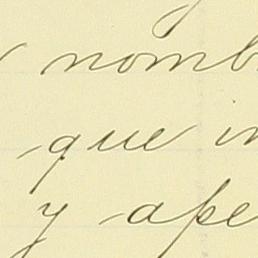 nomb
que in
y ape